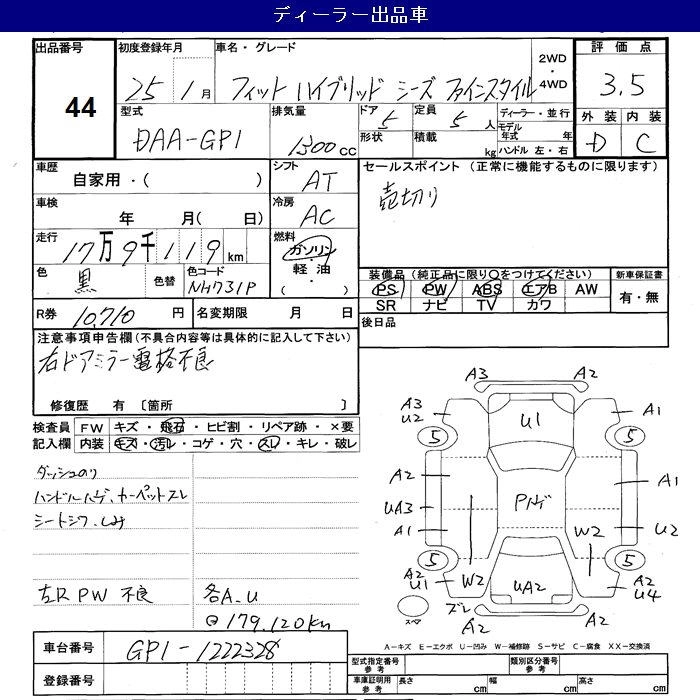 ディーラー出品車
出品番号 44
初度登録年月 25 1月
車名・グレード フィット ハイブリッド シーズ ファインスタイル
2WD・4WD
評価点 3.5
外装 D 内装 C
型式 DAA-GP1
排気量 1300cc
ドア 5 形状
定員 5人 積載 kg
ディーラー・並行
モデル年式 年
ハンドル 左・右
車歴 自家用・( )
シフト AT
車検 年 月( 日)
冷房 AC
走行 17万9千119km
燃料 ガソリン・軽油・( )
色 黒 色替 色コード NH731P
セールスポイント (正常に機能するものに限ります)
売切り
装備品(純正品に限り○をつけてください)
PS PW ABS エアB AW
SR ナビ TV カワ
新車保証書 有・無
R券 10,710円 名変期限 月 日
後日品
注意事項申告欄(不具合内容等は具体的に記入して下さい)
右ドアミラー電格不良
修復歴 有 〔箇所 〕
検査員記入欄
FW キズ・飛石・ヒビ割・リペア跡・×要
内装 キズ・汚レ・コゲ・穴・スレ・キレ・破レ
ダッシュのり
ハンドルハゲ、カーペットスレ
シートシワ、しみ
左R PW 不良 各A.U
179.120km
A3 A2
A3 U2 U1 A1
5 5
A2 A1
UA3
A1 W2 W2 U2
5 5
A2 U1 UA2 A2 U4
スペ ズレ A2 A2
A-キズ E-エクボ U-凹み W-補修跡 S-サビ C-腐食 XX-交換済
車台番号 GP1-1222328
登録番号
型式指定番号 参考 類別区分番号 参考
車庫証明用 参考 長さ cm 幅 cm 高さ cm